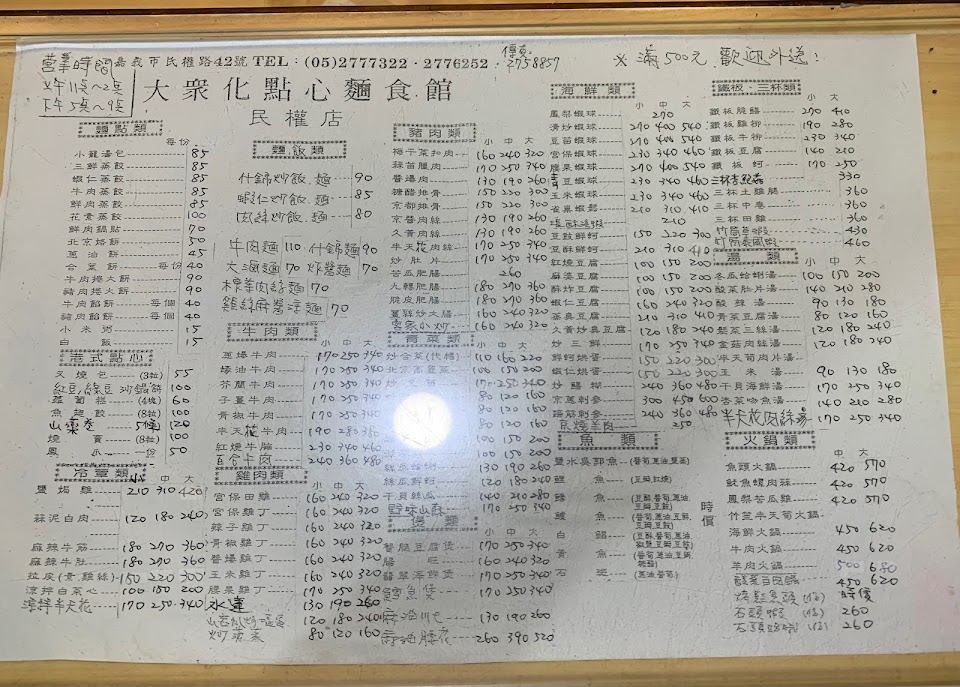 營業時間
嘉義市民權路42號 TEL:(05)2777322・2776252・2758857
※滿500元歡迎外送!
大眾化點心麵食館
民權店
麵點類
每份
小籠湯包 85
三鮮蒸餃 85
蝦仁蒸餃 85
牛肉蒸餃 85
鮮肉蒸餃 85
花素蒸餃 100
鮮肉鍋貼 70
北京烙餅 50
蔥油餅 45
合菜餅 每份 40
牛肉捲大餅 90
豬肉捲大餅 90
牛肉餡餅 每個 40
豬肉餡餅 每個 40
小米粥 15
白飯 15
港式點心
叉燒包 (3粒) 55
蘿蔔糕 (4塊) 60
魚翅餃 (8粒) 100
燒賣 (8粒) 100
冷葷類
鹽焗雞 210 310 420
蒜泥白肉 120 180 240
麻辣牛筋 180 270 360
麻辣牛肚 180 270 360
拉皮(青.雞絲) 150 220 300
涼拌白菜心 100 150 200
涼拌半天花 170 250 340
麵飯類
什錦炒飯.麵 90
蝦仁炒飯.麵 85
肉絲炒飯.麵 80
牛肉麵 110 什錦麵 90
大滷麵 70 炸醬麵 70
榨菜肉絲麵 70
雞絲麻醬涼麵 70
牛肉類
蔥爆牛肉 170 250 340
蠔油牛肉 170 250 340
芥蘭牛肉 170 250 340
子薑牛肉 170 250 340
青椒牛肉 170 250 340
半天花牛肉 190 280 380
紅燒牛腩 230 340 460
百合牛肉 240 360 480
雞肉類
小 中 大
宮保田雞 160 240 320
宮保雞丁 160 240 320
辣子雞丁 160 240 320
青椒雞丁 160 240 320
醬爆雞丁 160 240 320
玉米雞丁 160 240 320
腰果雞丁 170 250 340
水蓮 130 190 260
120 180 240
80 120 160
豬肉類
小 中 大
梅干菜扣肉 160 240 320
蒜苗臘肉 170 250 340
醬爆肉 130 190 260
糖醋排骨 150 220 300
京都排骨 150 220 300
京醬肉絲 130 190 260
久黃肉絲 130 190 260
半天花肉絲 170 250 340
炒肚片 170 250 340
苦瓜肥腸 260
九轉肥腸 180 270 360
脆皮肥腸 180 270 360
薑絲炒大腸 160 240 320
客家小炒 160 240 320
青菜類
炒合菜(代帽) 110 160 220
絲瓜鮮蚵
干貝絲瓜 140 210 280
130 190 260
煲類
小 中 大
蟹腿豆腐煲 170 250 340
腸旺 160 240 320
翡翠海鮮煲 170 250 340
鱈魚煲 170 250 340
麻油川七 130 190 260
麻油腰花 260 390 520
海鮮類
小 中 大
鳳梨蝦球 270
清炒蝦球 270 400 540
豆苗蝦球 270 400 540
宮保蝦球 230 340 460
腰果蝦球 270 400 540
青豆蝦球 230 340 460
玉米蝦球 230 340 460
雀巢蝦鬆 210 310 410
210
豆豉鮮蚵 150 220 300
豆酥鮮蚵 210 310 410
紅燒豆腐 100 150 200
麻婆豆腐 100 150 200
酥炸豆腐 100 150 200
蝦仁豆腐 160 240 320
蒸臭豆腐 210 310 410
久黃炒臭豆腐 120 180 240
炒三鮮 170 250 340
鮮蚵烘蛋 150 220 300
蝦仁烘蛋 150 220 300
炒鱔糊 240 360 480
京蔥刺參 300 450 600
蹄筋刺參 240 360 480
京燒羊肉 250
魚類
鹽水吳郭魚 (蔥油.鹽蒸)
鯉魚 (豆瓣.紅燒)
鱈魚
鱸魚
白鯧
青魚
石斑 (蔥油.葡萄)
時價
鐵板、三杯類
小 中 大
鐵板腰鱔 270 410
鐵板雞柳 190 280
鐵板牛柳 230 340
鐵板豆腐 140 210
鐵板蚵 170 250
三杯杏鮑菇 330
三杯土雞腿 360
三杯中卷 360
三杯田雞 360
竹筒草蝦 430
竹筒泰國蝦 460
湯類
小 中 大
冬瓜蛤蜊湯 100 150 200
酸菜肚片湯 140 210 280
酸辣湯 90 130 180
青菜豆腐湯 80 120 160
髮菜三絲湯 120 180 240
金菇肉絲湯 120 180 240
半天筍肉片湯
玉米湯 90 130 180
干貝海鮮湯 170 250 340
杏菜吻魚湯 140 210 280
半天花肉絲湯 170 250 340
火鍋類
中 大
魚頭火鍋 420 570
魷魚螺肉蒜 420 570
鳳梨苦瓜雞 420 570
竹笙半天筍火鍋
海鮮火鍋 450 620
牛肉火鍋 450 620
羊肉火鍋 500 680
酸菜白肉鍋 450 620
時價
石頭蝦 260
260